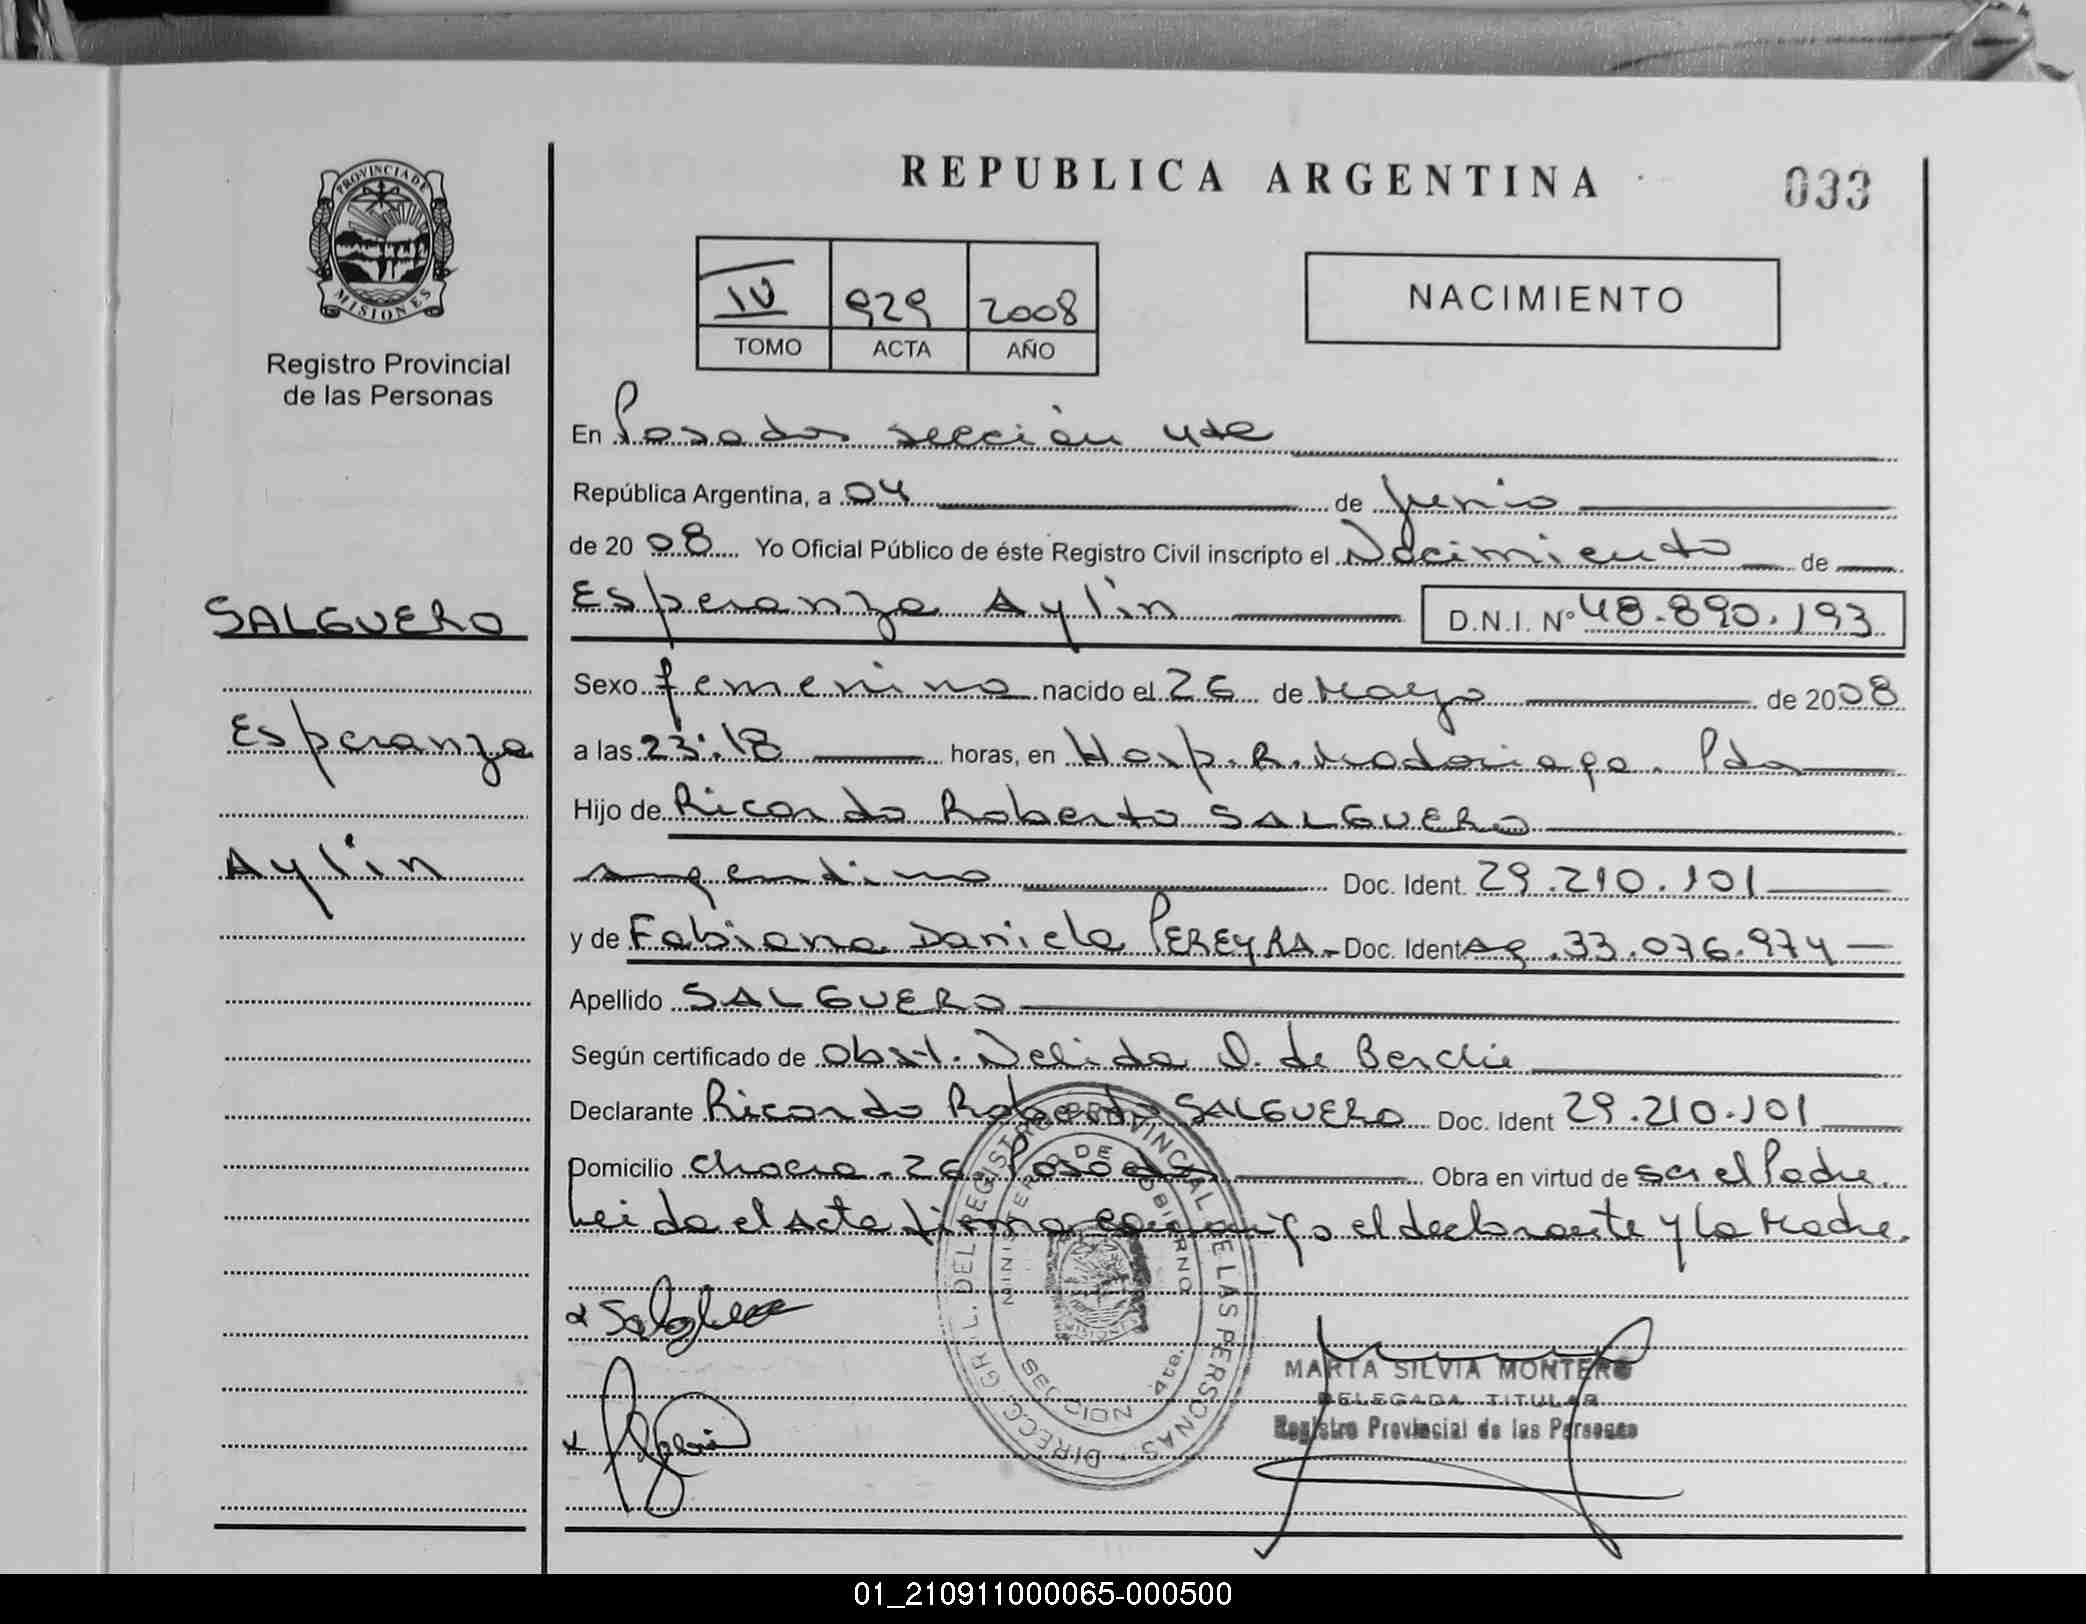 REPUBLICA ARGENTINA
033
PROVINCIA DE
MISIONES
Registro Provincial
de las Personas
IV 929 2008
TOMO ACTA AÑO
NACIMIENTO
En Posadas sección 4ta
República Argentina, a 04 de Junio
de 2008 Yo Oficial Público de éste Registro Civil inscripto el Nacimiento de
Esperanza Aylin D.N.I. Nº 48.890.193
SALGUERO
Esperanza
Aylin
Sexo femenino nacido el 26 de Mayo de 2008
a las 23:18 horas, en Hosp. R. Madariaga. Pdas
Hijo de Ricardo Roberto SALGUERO
argentino Doc. Ident. 29.210.101
y de Fabiana Daniela PEREYRA - Doc. Ident Ag. 33.076.974
Apellido SALGUERO
Según certificado de Obst. Nelida O. de
Declarante Ricardo Roberto SALGUERO Doc. Ident 29.210.101
Domicilio Chacra - 26 Posadas Obra en virtud de ser el Padre.
Leida el Acta firma conmigo el declarante y la Madre.
DIRECC. GRL. DEL REGISTRO PROVINCIAL DE LAS PERSONAS
MINISTERIO DE GOBIERNO
MARTA SILVIA MONTERO
DELEGADA TITULAR
Registro Provincial de las Personas
01_210911000065-000500